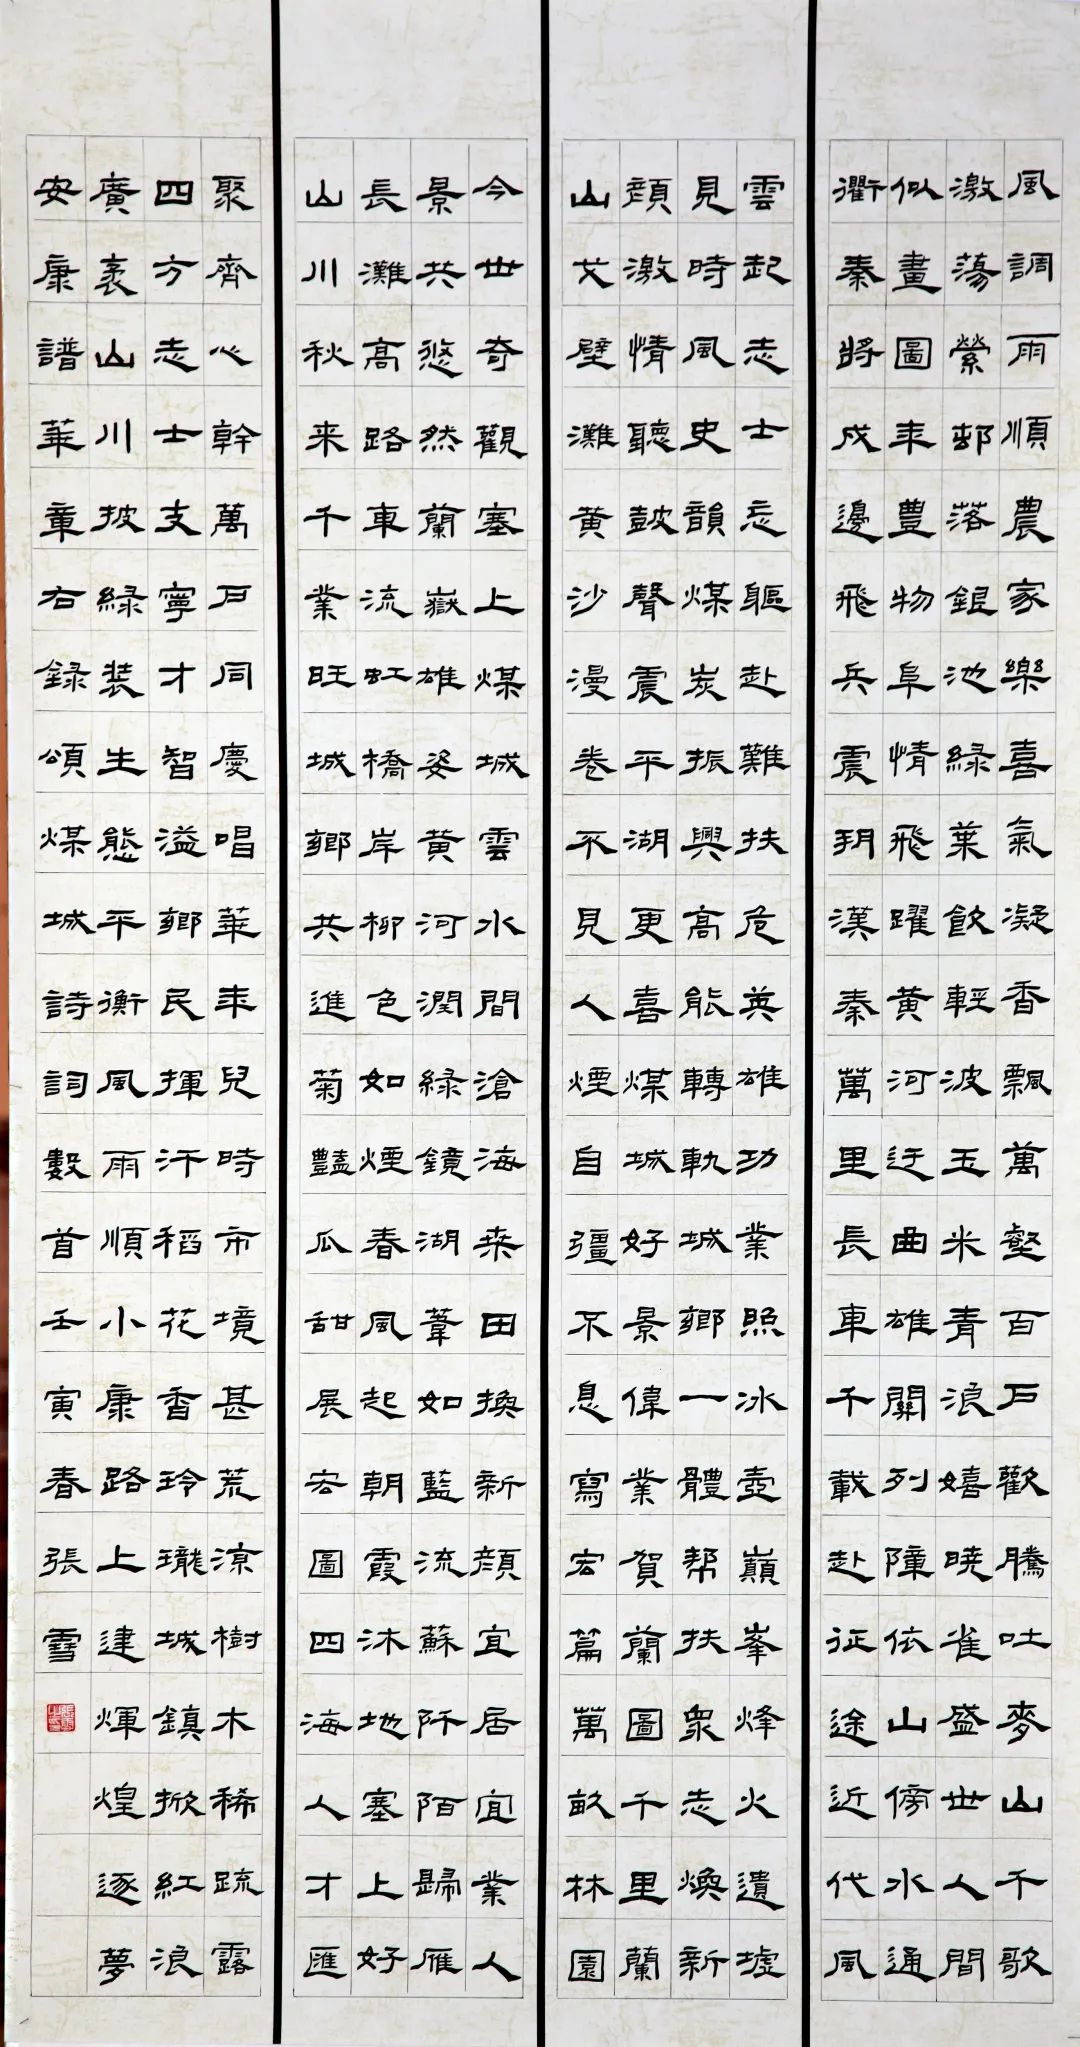 風調雨順農家樂喜氣凝香飄萬壑百戶歡騰吐麥山千歌
激蕩縈邨落銀池緑葉飲輕波玉米青浪嬉曉雀盛世人間
似畫圖年豊物阜情飛躍黃河迂曲雄關列障依山傍水通
衢秦將戍邊飛兵震朔漢秦萬里長車千載赴征途近代風
雲起志士忘軀赴難扶危英雄功業照冰壺巔峯烽火遺墟
見時風史韻煤炭振興高能轉軌城鄉一體幫扶衆志煥新
顔激情聽鼓聲震平湖更喜煤城好景偉業賀蘭圖千里蘭
山戈壁灘黃沙漫卷不見人煙自彊不息寫宏篇萬畝林園
今世奇觀塞上煤城雲水間滄海桑田換新顔宜居宜業人
景共悠然蘭嶽雄姿黃河潤緑鏡湖葦如藍流蘇阡陌歸雁
長灘高路車流虹橋岸柳色如煙春風起朝霞沐地塞上好
山川秋来千業旺城鄉共進菊豔瓜甜展宏圖四海人才匯
聚齊心幹萬戶同慶唱華年兒時市境甚荒涼樹木稀疏露
四方志士支寧才智溢鄉民揮汗稻花香玲瓏城鎮掀紅浪
廣袤山川披緑装生態平衡風雨順小康路上建輝煌逐夢
安康譜華章右録頌煤城詩詞數首壬寅春張雪